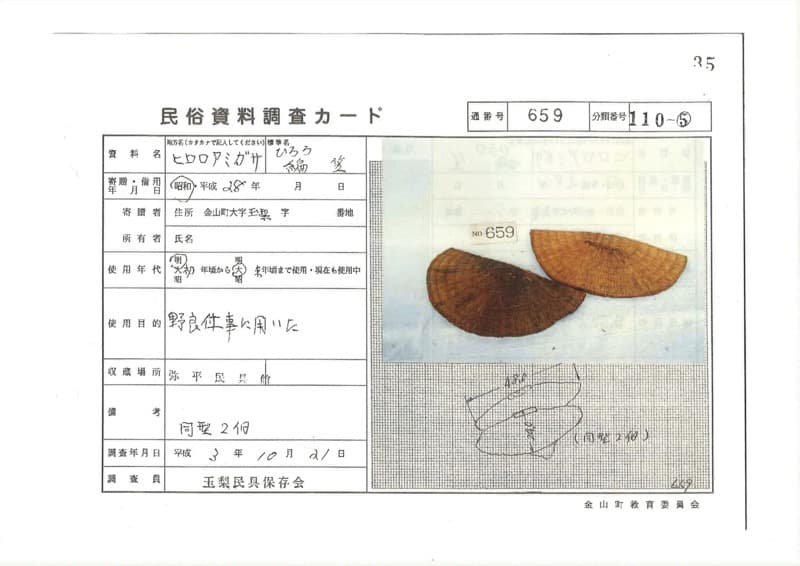 35
民俗資料調査カード
通番号 659 分類番号 110-⑤
資料名 地方名(カタカナで記入してください) ヒロロアミガサ 標準名 ひろろ編笠
寄贈・借用年月日 昭和・平成 28年 月 日
寄贈者 住所 金山町大字玉梨字 番地
所有者 氏名
使用年代 明大昭 初年頃から 明大昭 末年頃まで使用・現在も使用中
使用目的 野良仕事に用いた
収蔵場所 弥平民具館
備考 同型2個
調査年月日 平成 3年 10月 21日
調査員 玉梨民具保存会
NO 659
(同型2個)
659
金山町教育委員会